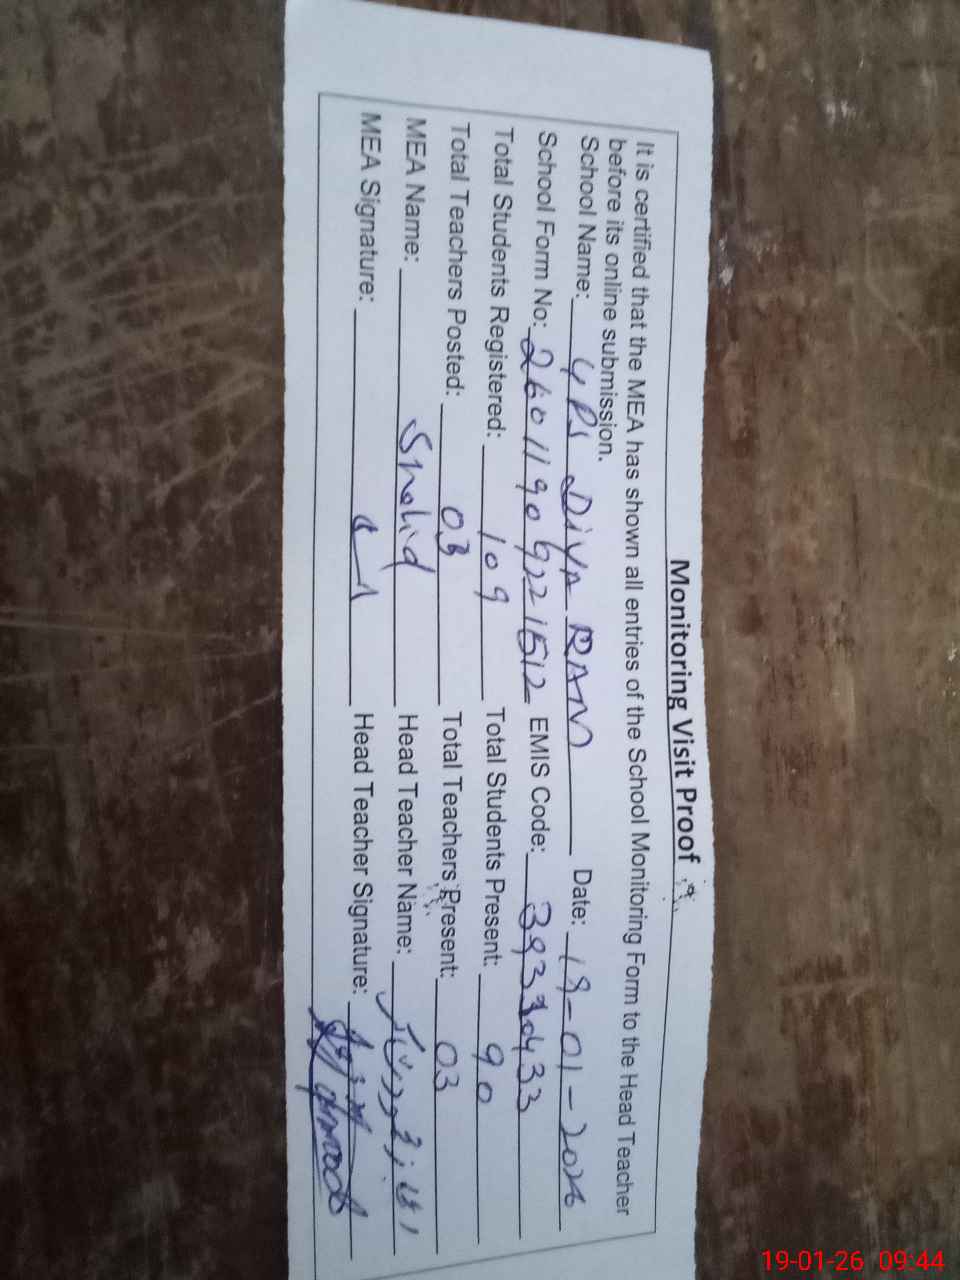 Monitoring Visit Proof
It is certified that the MEA has shown all entries of the School Monitoring Form to the Head Teacher
before its online submission.
School Name: GPS DIYA RAM Date: 19-01-2026
School Form No: EMIS Code:
Total Students Registered: 109 Total Students Present: 90
Total Teachers Posted: 03 Total Teachers Present: 03
MEA Name: Shahid Head Teacher Name:
MEA Signature: Head Teacher Signature:
19-01-26 09:44